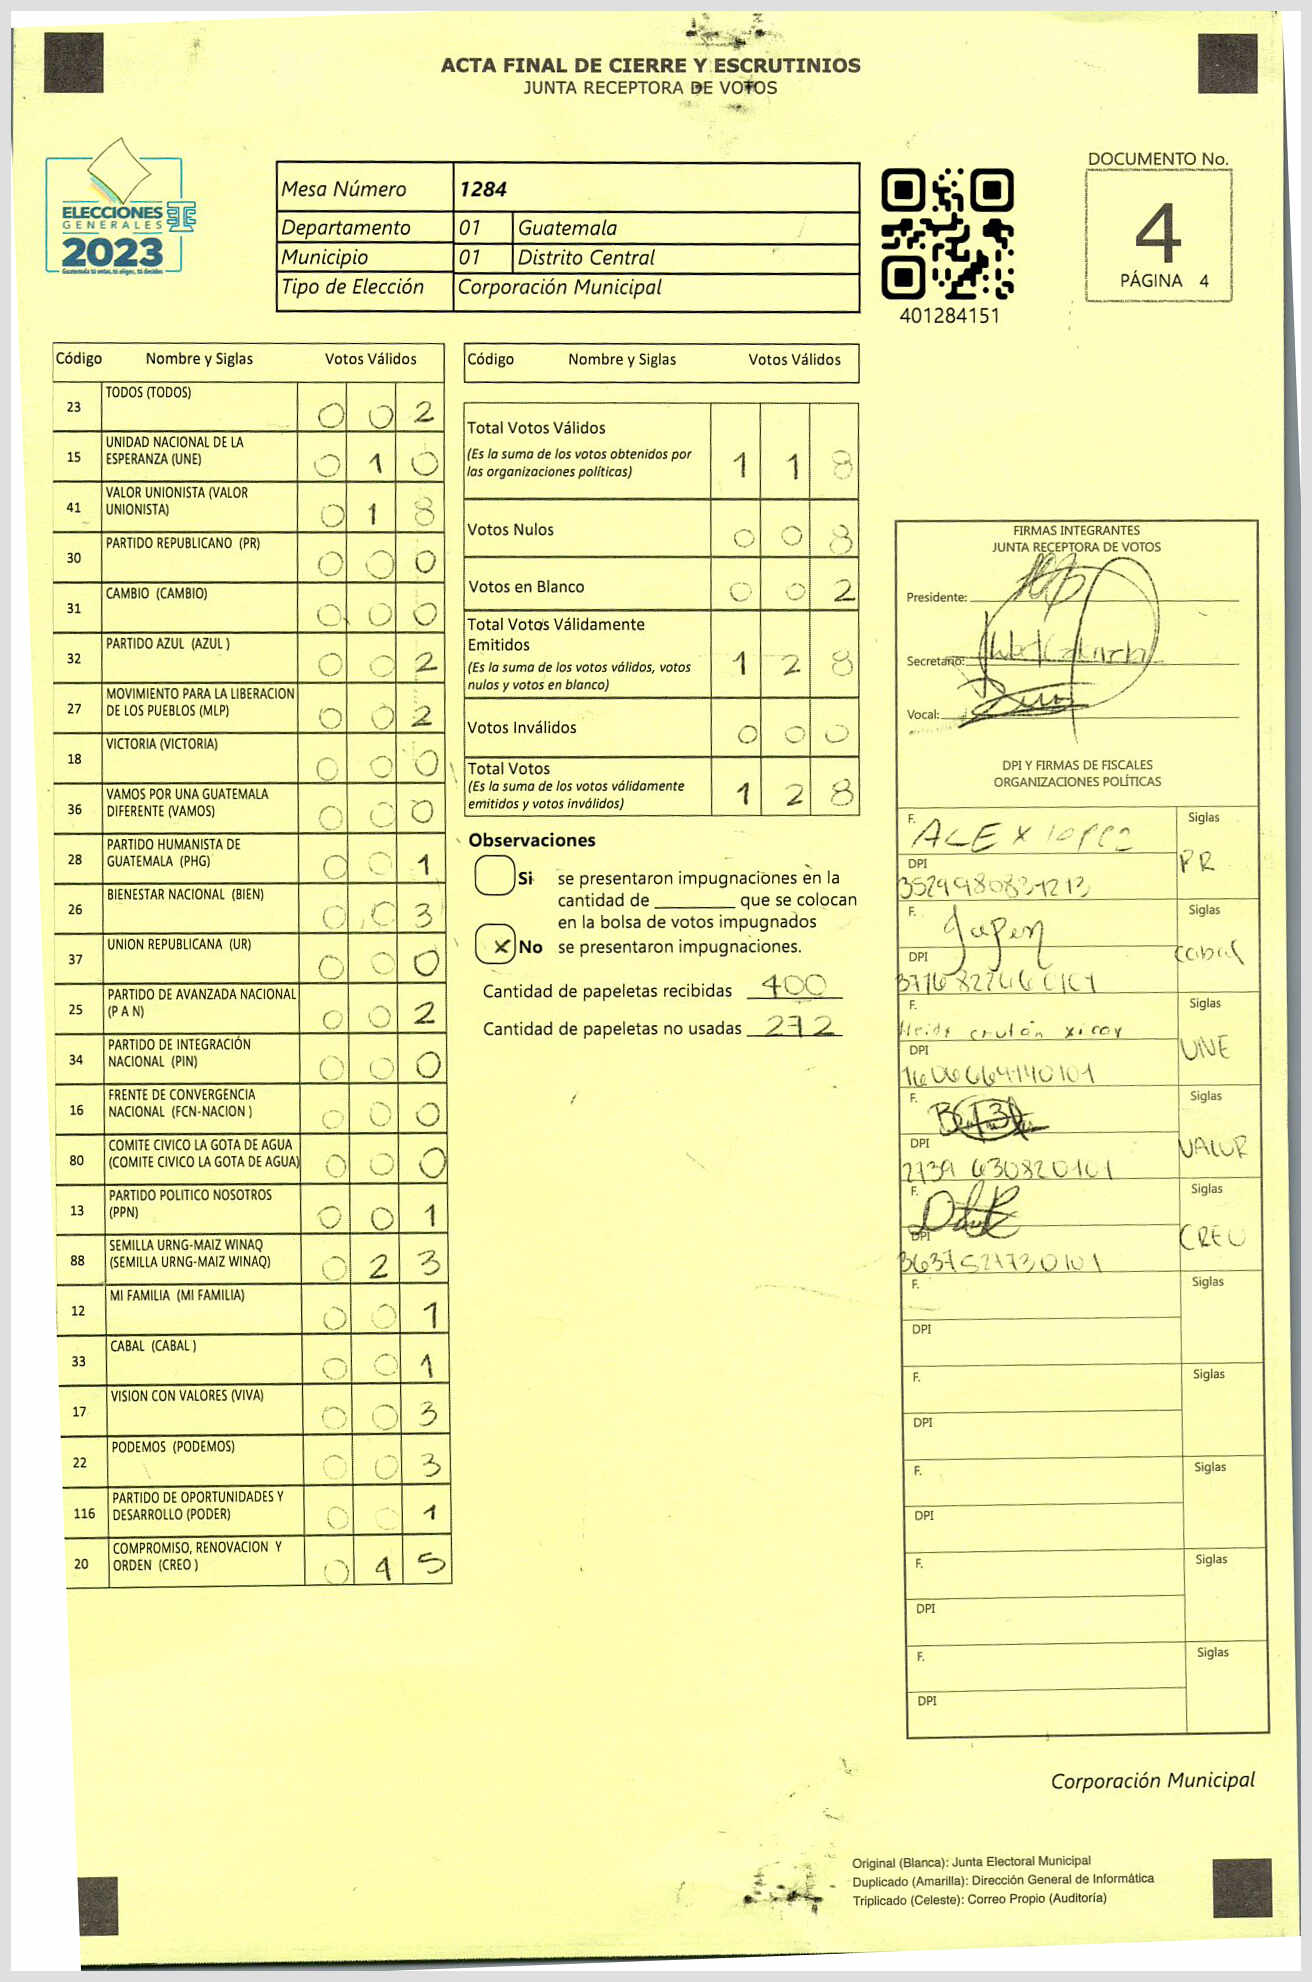 ACTA FINAL DE CIERRE Y ESCRUTINIOS
JUNTA RECEPTORA DE VOTOS
ELECCIONES
GENERALES
2023
Guatemala tú votas, tú eliges, tú decides
Mesa Número 1284
Departamento 01 Guatemala
Municipio 01 Distrito Central
Tipo de Elección Corporación Municipal
401284151
DOCUMENTO No.
4
PÁGINA 4
Código Nombre y Siglas Votos Válidos
23 TODOS (TODOS) 0 0 2
15 UNIDAD NACIONAL DE LA ESPERANZA (UNE) 0 1 0
41 VALOR UNIONISTA (VALOR UNIONISTA) 0 1 8
30 PARTIDO REPUBLICANO (PR) 0 0 0
31 CAMBIO (CAMBIO) 0 0 0
32 PARTIDO AZUL (AZUL ) 0 0 2
27 MOVIMIENTO PARA LA LIBERACION DE LOS PUEBLOS (MLP) 0 0 2
18 VICTORIA (VICTORIA) 0 0 0
36 VAMOS POR UNA GUATEMALA DIFERENTE (VAMOS) 0 0 0
28 PARTIDO HUMANISTA DE GUATEMALA (PHG) 0 0 1
26 BIENESTAR NACIONAL (BIEN) 0 0 3
37 UNION REPUBLICANA (UR) 0 0 0
25 PARTIDO DE AVANZADA NACIONAL (P A N) 0 0 2
34 PARTIDO DE INTEGRACIÓN NACIONAL (PIN) 0 0 0
16 FRENTE DE CONVERGENCIA NACIONAL (FCN-NACION ) 0 0 0
80 COMITE CIVICO LA GOTA DE AGUA (COMITE CIVICO LA GOTA DE AGUA) 0 0 0
13 PARTIDO POLITICO NOSOTROS (PPN) 0 0 1
88 SEMILLA URNG-MAIZ WINAQ (SEMILLA URNG-MAIZ WINAQ) 0 2 3
12 MI FAMILIA (MI FAMILIA) 0 0 1
33 CABAL (CABAL ) 0 0 1
17 VISION CON VALORES (VIVA) 0 0 3
22 PODEMOS (PODEMOS) 0 0 3
116 PARTIDO DE OPORTUNIDADES Y DESARROLLO (PODER) 0 0 1
20 COMPROMISO, RENOVACION Y ORDEN (CREO ) 0 4 5
Código Nombre y Siglas Votos Válidos
Total Votos Válidos 1 1 8
(Es la suma de los votos obtenidos por
las organizaciones políticas)
Votos Nulos 0 0 8
Votos en Blanco 0 0 2
Total Votos Válidamente
Emitidos 1 2 8
(Es la suma de los votos válidos, votos
nulos y votos en blanco)
Votos Inválidos 0 0 0
Total Votos 1 2 8
(Es la suma de los votos válidamente
emitidos y votos inválidos)
Observaciones
Si se presentaron impugnaciones en la
cantidad de ________ que se colocan
en la bolsa de votos impugnados
X No se presentaron impugnaciones.
Cantidad de papeletas recibidas 400
Cantidad de papeletas no usadas 272
FIRMAS INTEGRANTES
JUNTA RECEPTORA DE VOTOS
Presidente:
Secretario:
Vocal:
DPI Y FIRMAS DE FISCALES
ORGANIZACIONES POLÍTICAS
F. ALEX LOPEZ Siglas
DPI PR
F. Siglas
DPI Cabal
F. Siglas
DPI UNE
1606664140101
F. Siglas
DPI VALOR
F. Siglas
DPI CREO
F. Siglas
DPI
F. Siglas
DPI
F. Siglas
DPI
F. Siglas
DPI
F. Siglas
DPI
Corporación Municipal
Original (Blanca): Junta Electoral Municipal
Duplicado (Amarilla): Dirección General de Informática
Triplicado (Celeste): Correo Propio (Auditoría)